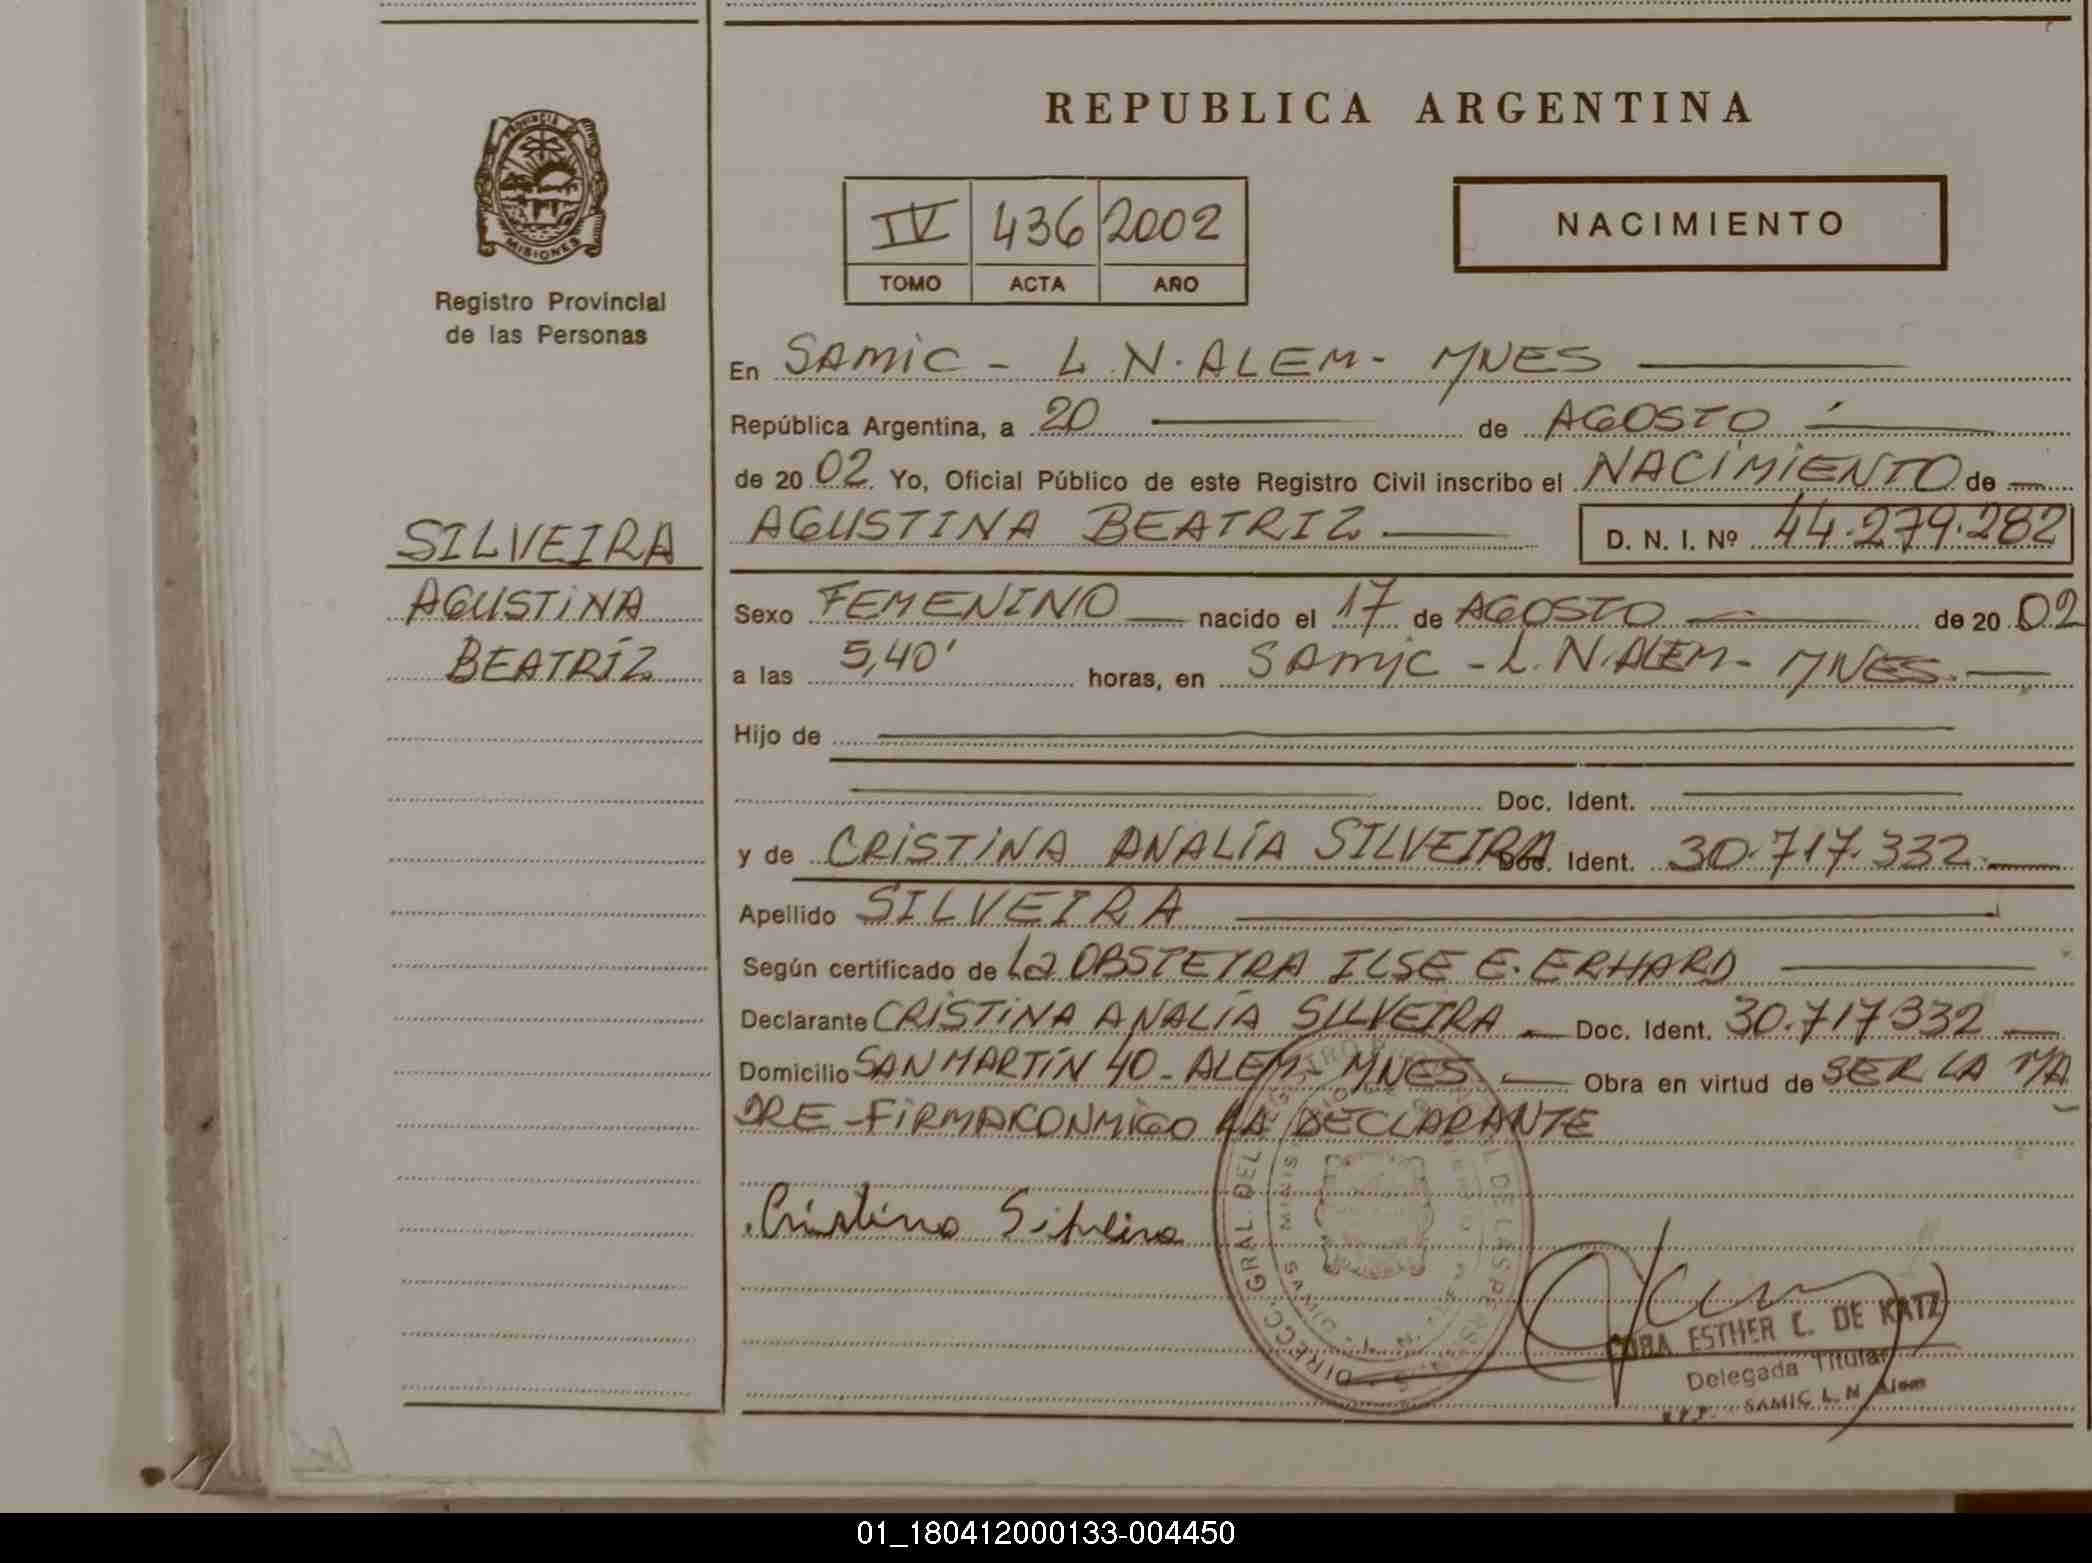 REPUBLICA ARGENTINA
PROVINCIA DE
MISIONES
Registro Provincial
de las Personas
IV 436 2002
TOMO ACTA AÑO
NACIMIENTO
En SAMIC - L.N. ALEM - MNES
República Argentina, a 20 de AGOSTO
de 20 02 Yo, Oficial Público de este Registro Civil inscribo el NACIMIENTO de
SILVEIRA
AGUSTINA BEATRIZ D. N. I. Nº 44.279.282
AGUSTINA
Sexo FEMENINO nacido el 17 de AGOSTO de 20 02
BEATRÍZ
a las 5,40' horas, en SAMIC - L.N. ALEM - MNES.
Hijo de
Doc. Ident.
y de CRISTINA ANALÍA SILVEIRA Doc. Ident. 30.717.332
Apellido SILVEIRA
Según certificado de La OBSTETRA ILSE E. ERHARD
Declarante CRISTINA ANALÍA SILVEIRA Doc. Ident. 30.717332
Domicilio SAN MARTÍN 40 - ALEM - MNES Obra en virtud de SER LA MA
DRE - FIRMA CONMIGO LA DECLARANTE
Cristina Silveira
DIRECC. GRAL. DEL REGISTRO DE LAS PERS
ESTHER C. DE KATZ
Delegada Titular
SAMIC L. N. Alem
01_180412000133-004450